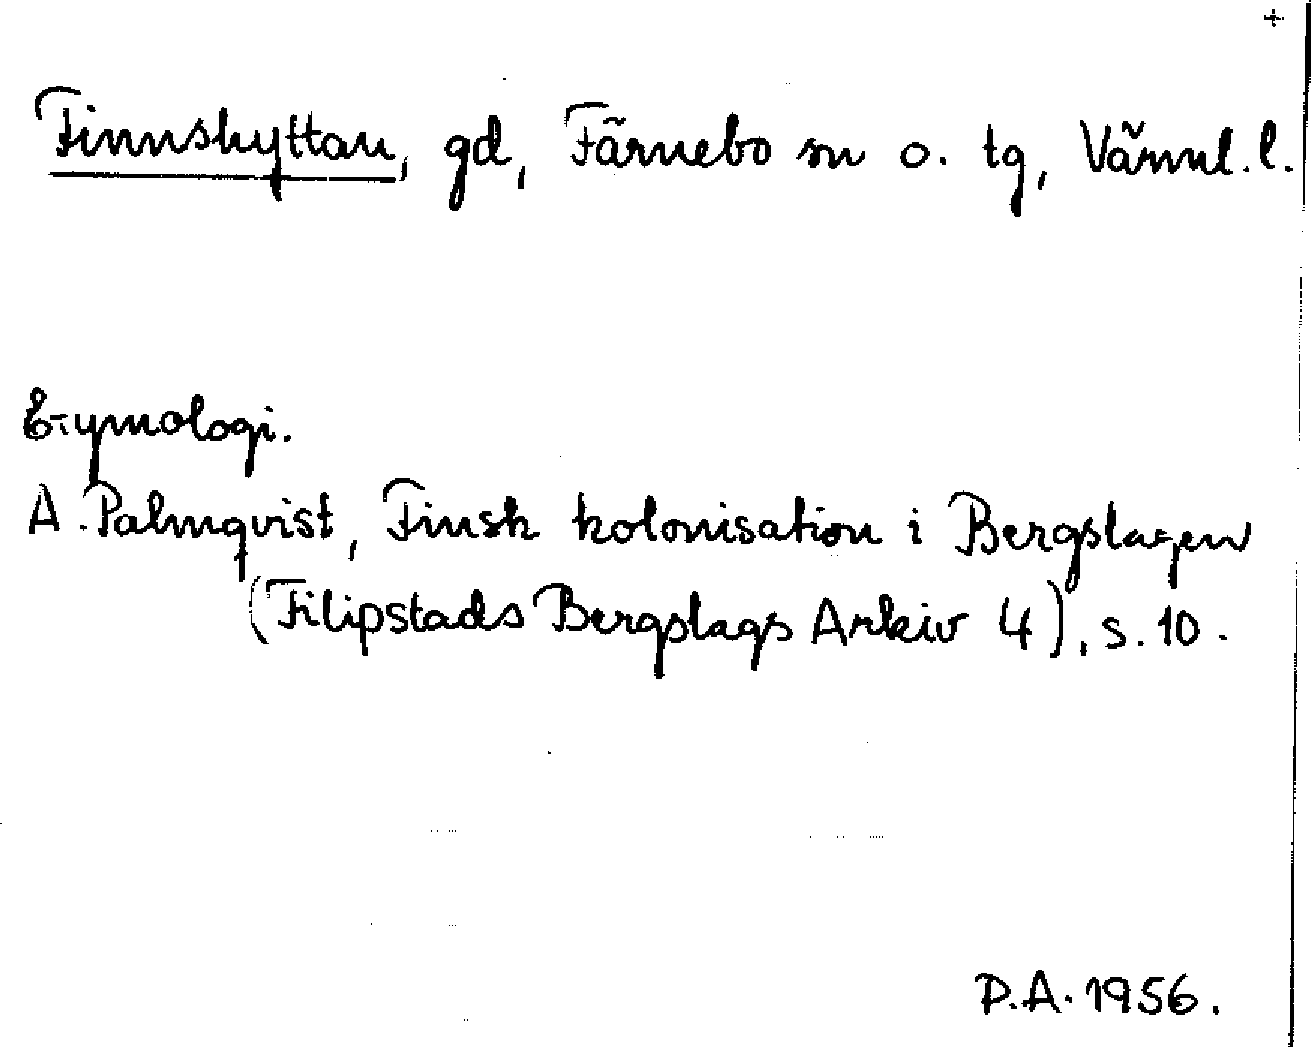 +
Finnshyttan, gd, Färnebo sn o. tg, Värml. l.
Etymologi.
A. Palmqvist, Finsk kolonisation i Bergslagen
(Filipstads Bergslags Arkiv 4), s. 10.
P.A. 1956.